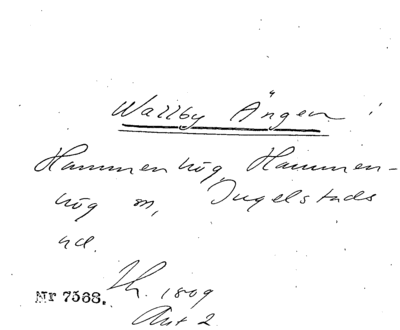 Wallby Ängen
Hammenhög, Hammen-
hög sn, Ingelstads
hd.
Nr 7568. Th. 1809
Akt 2